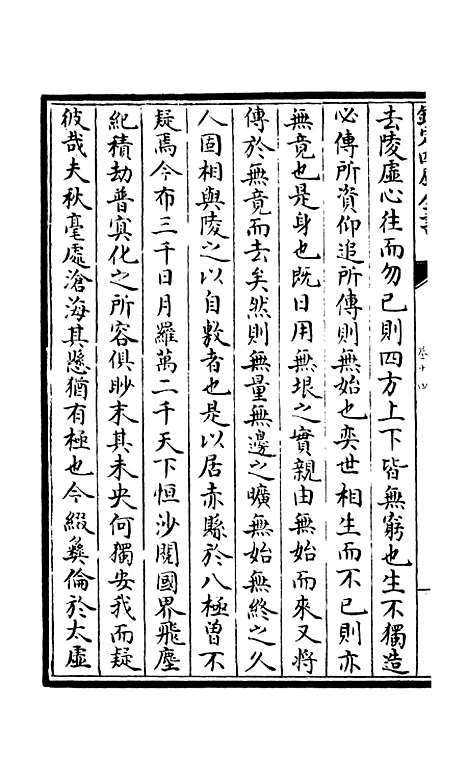 欽定四庫全書
卷十四
去陵虛心往而勿已則四方上下皆無窮也生不獨造
必傳所資仰追所傳則無始也奕世相生而不已則亦
無竟也是身也既日用無垠之實親由無始而來又將
傳於無竟而去矣然則無量無邊之曠無始無終之久
人固相與陵之以自敷者也是以居赤縣於八極曾不
疑焉今布三千日月羅萬二千天下恒沙閱國界飛塵
紀積劫普冥化之所容俱眇末其未央何獨安我而疑
彼哉夫秋毫處滄海其懸猶有極也今綴彝倫於太虛